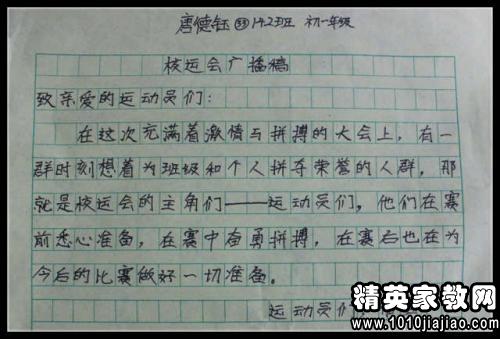 唐德钰 ㉝ 142班 初一年级
校运会广播稿
致亲爱的运动员们：
在这次充满着激情与拼搏的大会上，有一
群时刻想着为班级和个人拼夺荣誉的人群，那
就是校运会的主角们——运动员们，他们在赛
前悉心准备，在赛中奋勇拼搏，在赛后也在为
今后的比赛做好一切准备。
运动员们
精英家教网
www.1010jiajiao.com